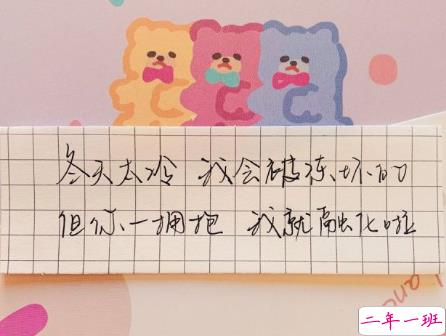 冬天太冷 我会被冻坏的
但你一拥抱 我就融化啦
二年一班